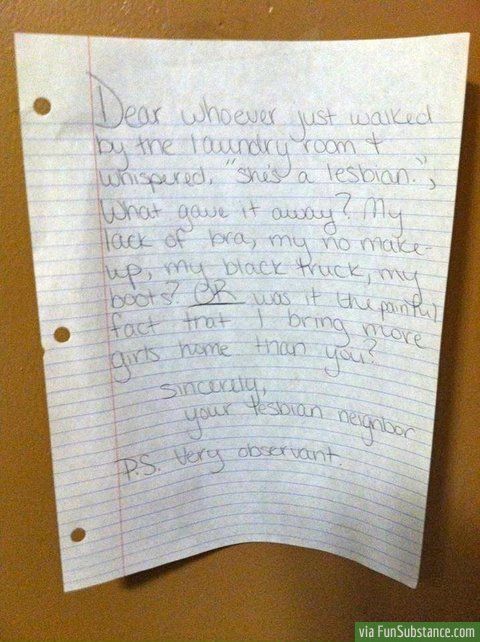 Dear whoever just walked
by the laundry room +
whispered, "she's a lesbian.",
What gave it away? My
lack of bra, my no make-
up, my black truck, my
boots? OR was it the painful
fact that I bring more
girls home than you?
sincerely,
your lesbian neighbor
P.S. Very observant.
via FunSubstance.com